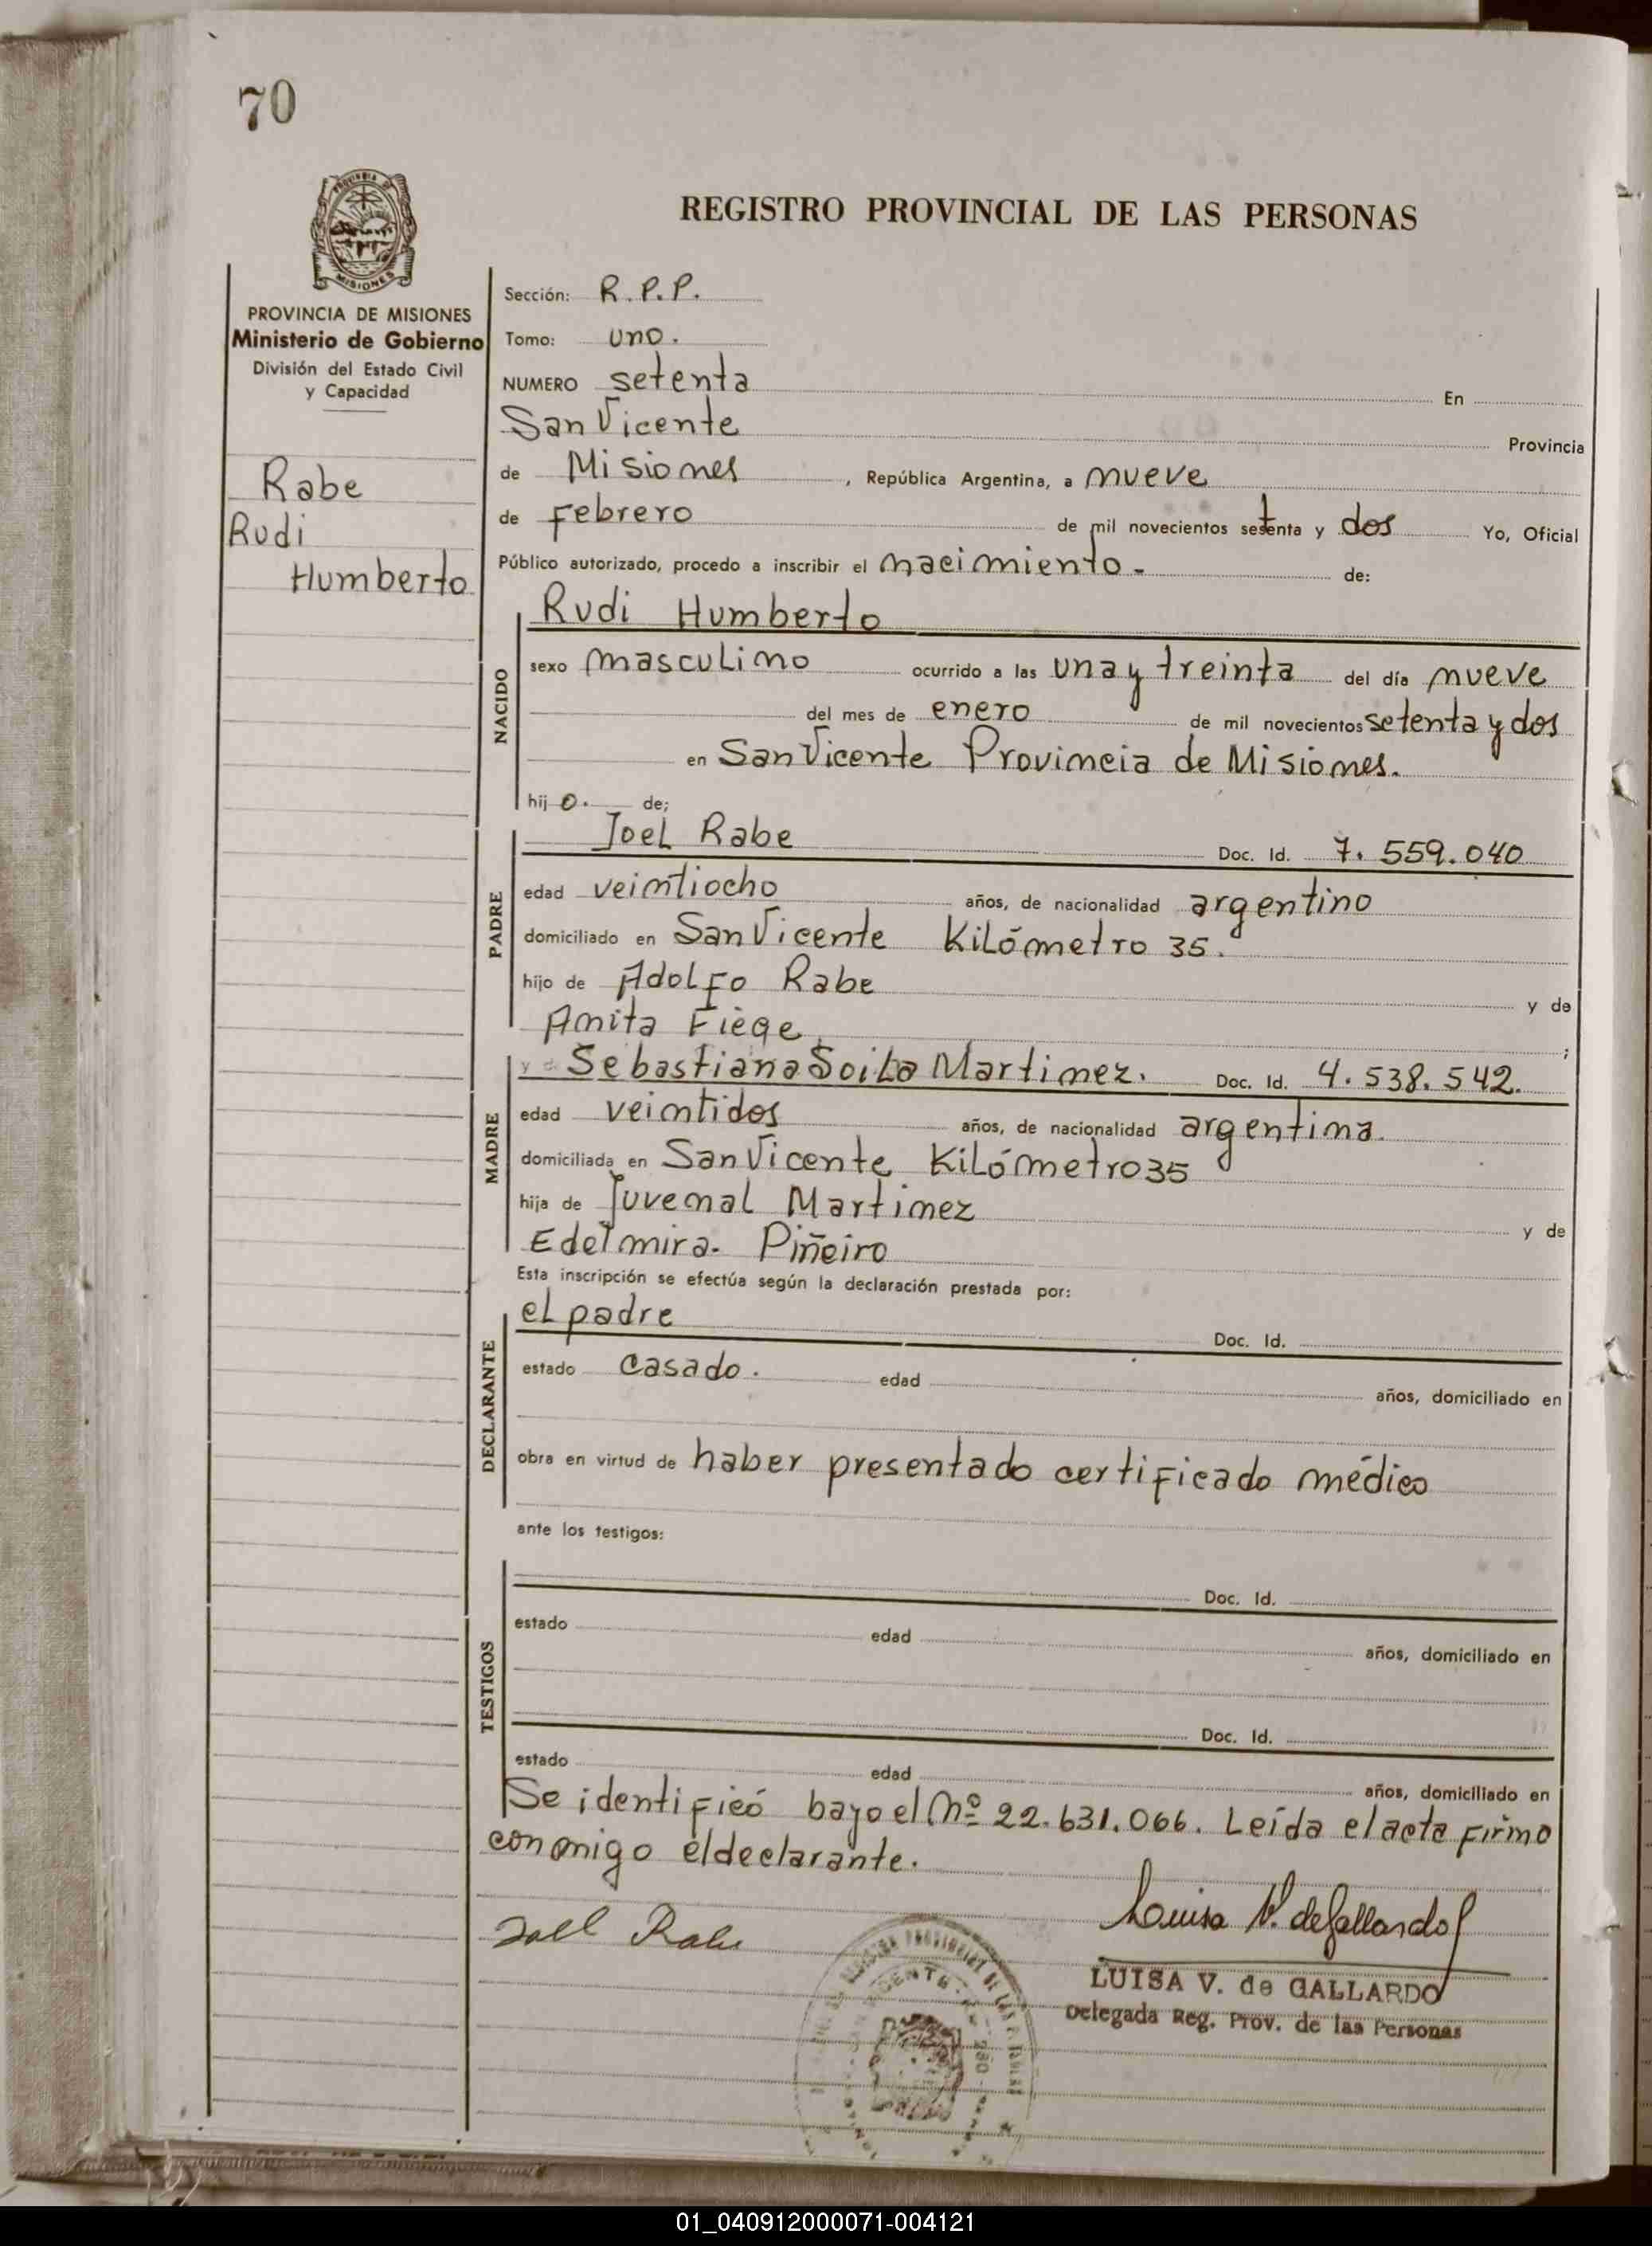 70
REGISTRO PROVINCIAL DE LAS PERSONAS
MISIONES
PROVINCIA DE MISIONES
Ministerio de Gobierno
División del Estado Civil
y Capacidad
Rabe
Rudi
Humberto
Sección: R.P.P.
Tomo: uno.
NUMERO setenta En
San Vicente Provincia
de Misiones, República Argentina, a nueve
de Febrero de mil novecientos setenta y dos Yo, Oficial
Público autorizado, procedo a inscribir el nacimiento - de:
NACIDO
Rudi Humberto
sexo masculino ocurrido a las una y treinta del día nueve
del mes de enero de mil novecientos setenta y dos
en San Vicente Provincia de Misiones.
hijo. de;
PADRE
Joel Rabe Doc. Id. 7.559.040
edad veintiocho años, de nacionalidad argentino
domiciliado en San Vicente Kilómetro 35.
hijo de Adolfo Rabe y de
Anita Fiege ;
MADRE
y de Sebastiana Soila Martinez. Doc. Id. 4.538.542.
edad veintidos años, de nacionalidad argentina.
domiciliada en San Vicente Kilómetro 35
hija de Juvenal Martinez y de
Edelmira. Piñeiro
Esta inscripción se efectúa según la declaración prestada por:
DECLARANTE
el padre Doc. Id.
estado casado. edad años, domiciliado en
obra en virtud de haber presentado certificado médico
ante los testigos:
TESTIGOS
Doc. Id.
estado edad años, domiciliado en
Doc. Id.
estado edad años, domiciliado en
Se identificó bajo el Nº 22.631.066. Leída el acta firmo
conmigo el declarante.
Joel Rabe
Luisa V. de Gallardo
LUISA V. de GALLARDO
Delegada Reg. Prov. de las Personas
01_040912000071-004121